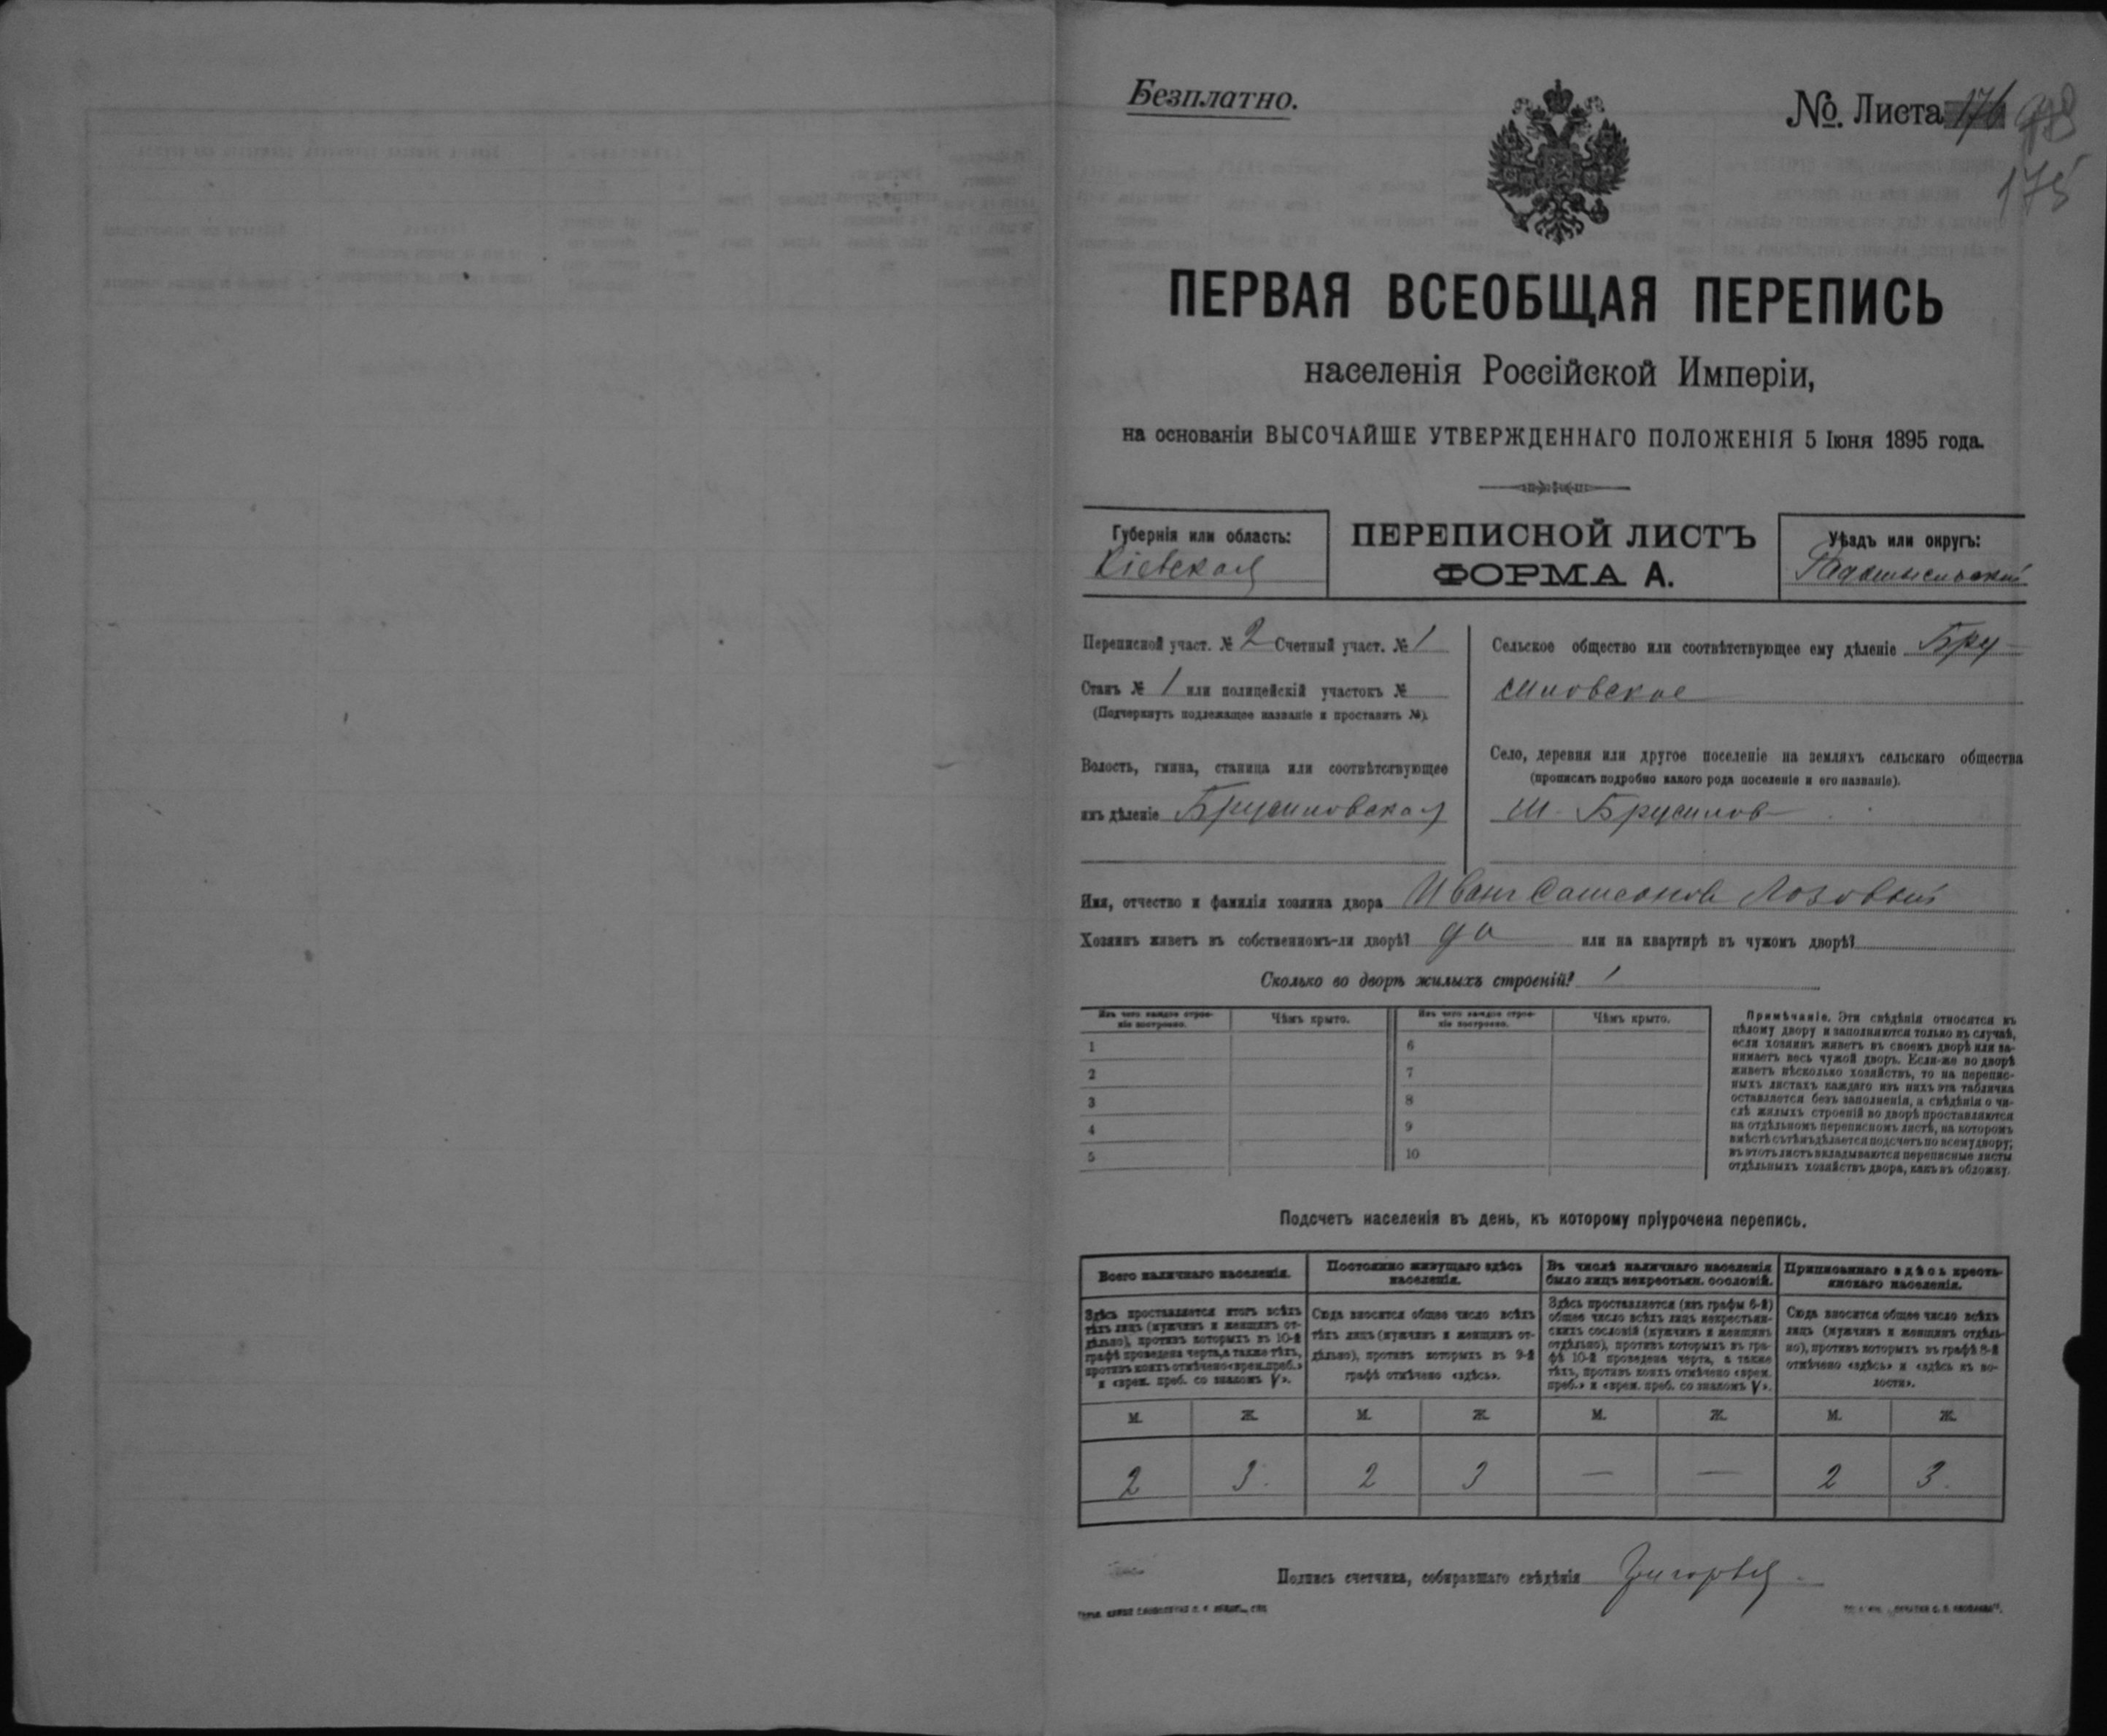 Безплатно.
№ Листа 176
175
ПЕРВАЯ ВСЕОБЩАЯ ПЕРЕПИСЬ
населенія Россійской Имперіи,
на основаніи ВЫСОЧАЙШЕ УТВЕРЖДЕННАГО ПОЛОЖЕНІЯ 5 Іюня 1895 года.
Губернія или область:
Кіевская
ПЕРЕПИСНОЙ ЛИСТЪ
ФОРМА А.
Уѣздъ или округъ:
Радомысльскій
Переписной участ. № 2 Счетный участ. № 1
Станъ № 1 или полицейскій участокъ №
(Подчеркнуть подлежащее названіе и проставить №).
Волость, гмина, станица или соотвѣтствующее
имъ дѣленіе Брусиловская
Сельское общество или соотвѣтствующее ему дѣленіе Бру-
силовское
Село, деревня или другое поселеніе на земляхъ сельскаго общества
(прописать подробно какого рода поселеніе и его названіе).
м. Брусилов
Имя, отчество и фамилія хозяина двора Иванъ Самсонов Лозовый
Хозяинъ живетъ въ собственномъ-ли дворѣ? да или на квартирѣ въ чужомъ дворѣ?
Сколько во дворѣ жилыхъ строеній? 1
Изъ чего каждое строе-
ніе построено.
Чѣмъ крыто.
Изъ чего каждое строе-
ніе построено.
Чѣмъ крыто.
1 6
2 7
3 8
4 9
5 10
Примѣчаніе. Эти свѣдѣнія относятся къ
цѣлому двору и заполняются только въ случаѣ,
если хозяинъ живетъ въ своемъ дворѣ или за-
нимаетъ весь чужой дворъ. Если-же во дворѣ
живетъ нѣсколько хозяйствъ, то на перепис-
ныхъ листахъ каждаго изъ нихъ эта табличка
оставляется безъ заполненія, а свѣдѣнія о чи-
слѣ жилыхъ строеній во дворѣ проставляются
на отдѣльномъ переписномъ листѣ, на которомъ
вмѣстѣ съ тѣмъ дѣлается подсчетъ по всему двору;
въ этотъ листъ вкладываются переписные листы
отдѣльныхъ хозяйствъ двора, какъ въ обложку.
Подсчетъ населенія въ день, къ которому пріурочена перепись.
Всего наличнаго населенія.
Здѣсь проставляется итогъ всѣхъ
тѣхъ лицъ (мужчинъ и женщинъ от-
дѣльно), противъ которыхъ въ 10-й
графѣ проведена черта, а также тѣхъ,
противъ коихъ отмѣчено «врем. преб.»
и «врем. преб. со знакомъ V».
Постоянно живущаго здѣсь
населенія.
Сюда вносится общее число всѣхъ
тѣхъ лицъ (мужчинъ и женщинъ от-
дѣльно), противъ которыхъ въ 9-й
графѣ отмѣчено «здѣсь».
Въ числѣ наличнаго населенія
было лицъ некрестьян. сословій.
Здѣсь проставляется (изъ графы 6-й)
общее число всѣхъ лицъ некрестьян-
скихъ сословій (мужчинъ и женщинъ
отдѣльно), противъ которыхъ въ гра-
фѣ 10-й проведена черта, а также
тѣхъ, противъ коихъ отмѣчено «врем.
преб.» и «врем. преб. со знакомъ V».
Приписаннаго здѣсь кресть-
янскаго населенія.
Сюда вносится общее число всѣхъ
лицъ (мужчинъ и женщинъ отдѣль-
но), противъ которыхъ въ графѣ 8-й
отмѣчено «здѣсь» и «здѣсь въ во-
лости».
М. Ж. М. Ж. М. Ж. М. Ж.
2 3 2 3 — — 2 3
Подпись счетчика, собиравшаго свѣдѣнія